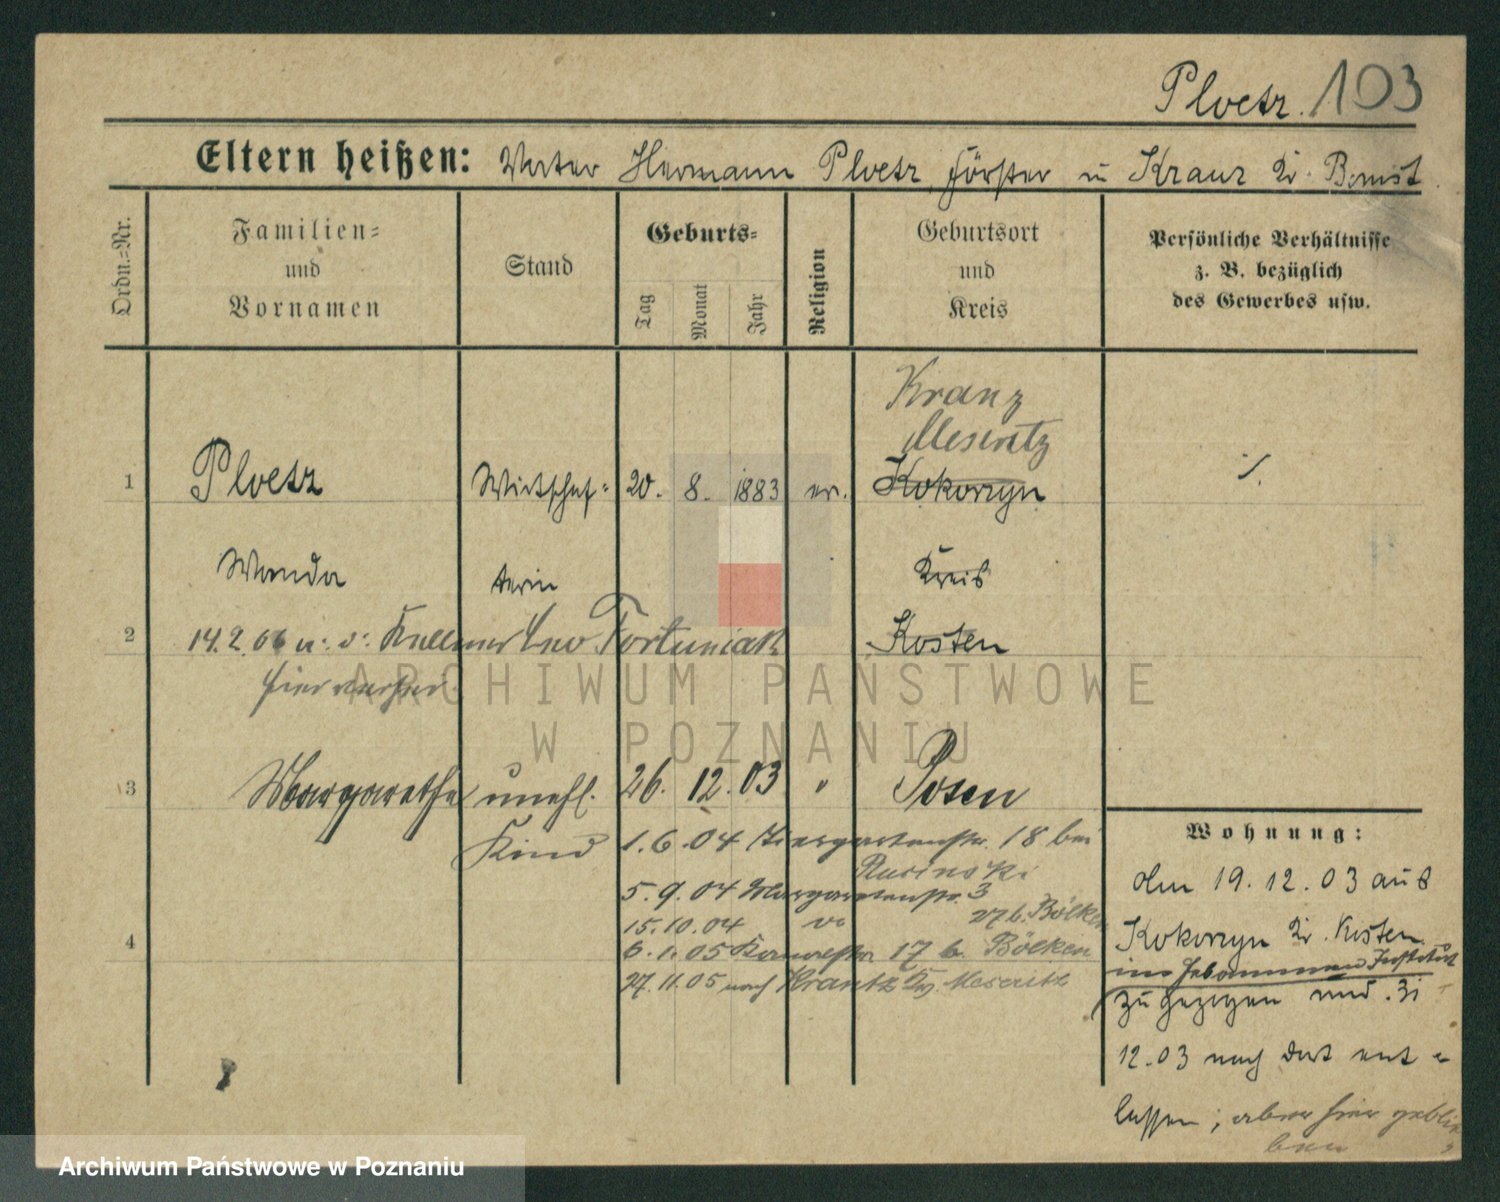 Ploetz. 103
Eltern heißen: Vater Hermann Ploetz, Förster in Kranz Kr. Bomst
Ordn.-Nr.
Familien-
und
Vornamen
Stand
Geburts-
Tag
Monat
Jahr
Religion
Geburtsort
und
Kreis
Persönliche Verhältnisse
z. B. bezüglich
des Gewerbes usw.
Kranz
Meseritz
1 Ploetz Wirtschaf- 20. 8. 1883 ev. Kokorzyn ./.
Wanda terin Kreis
2 14.2.06 u. v. Kellner Leo Fortuniak Kosten
hier
ARCHIWUM PAŃSTWOWE
W POZNANIU
3 Margarethe unehl. 26. 12. 03 " Posen
Kind 1.6.04 Tiergartenstr. 18 bei
Rusinski
5.9.04 Margaretenstr. 3
15.10.04 27 b. Bölken
4 6.1.05 17 b. Bölken
27.11.05 nach Krantz Kr. Meseritz
Wohnung:
Am 19.12.03 aus
Kokorzyn Kr. Kosten
ins Hebammen Institut
zugezogen und 31
12.03 nach dort ent-
lassen; aber hier geblie
ben
Archiwum Państwowe w Poznaniu